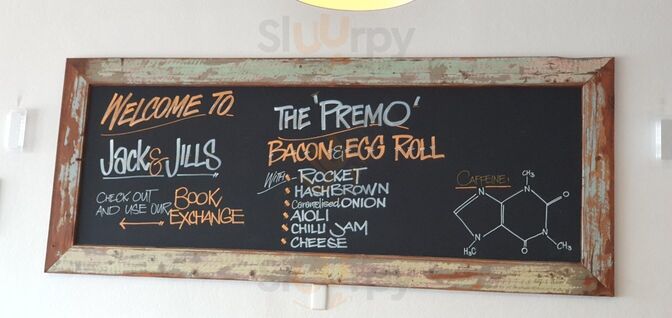 Sluurpy
WELCOME TO
JACK & JILLS
CHECK OUT
AND USE OUR BOOK
EXCHANGE
THE 'PREMO'
BACON & EGG ROLL
WITH
• ROCKET
• HASHBROWN
• Caramelised ONION
• AIOLI
• CHILLI JAM
• CHEESE
CAFFEINE:
CH₃
N
N
O
N
N
H₃C
O
CH₃
Sluurpy